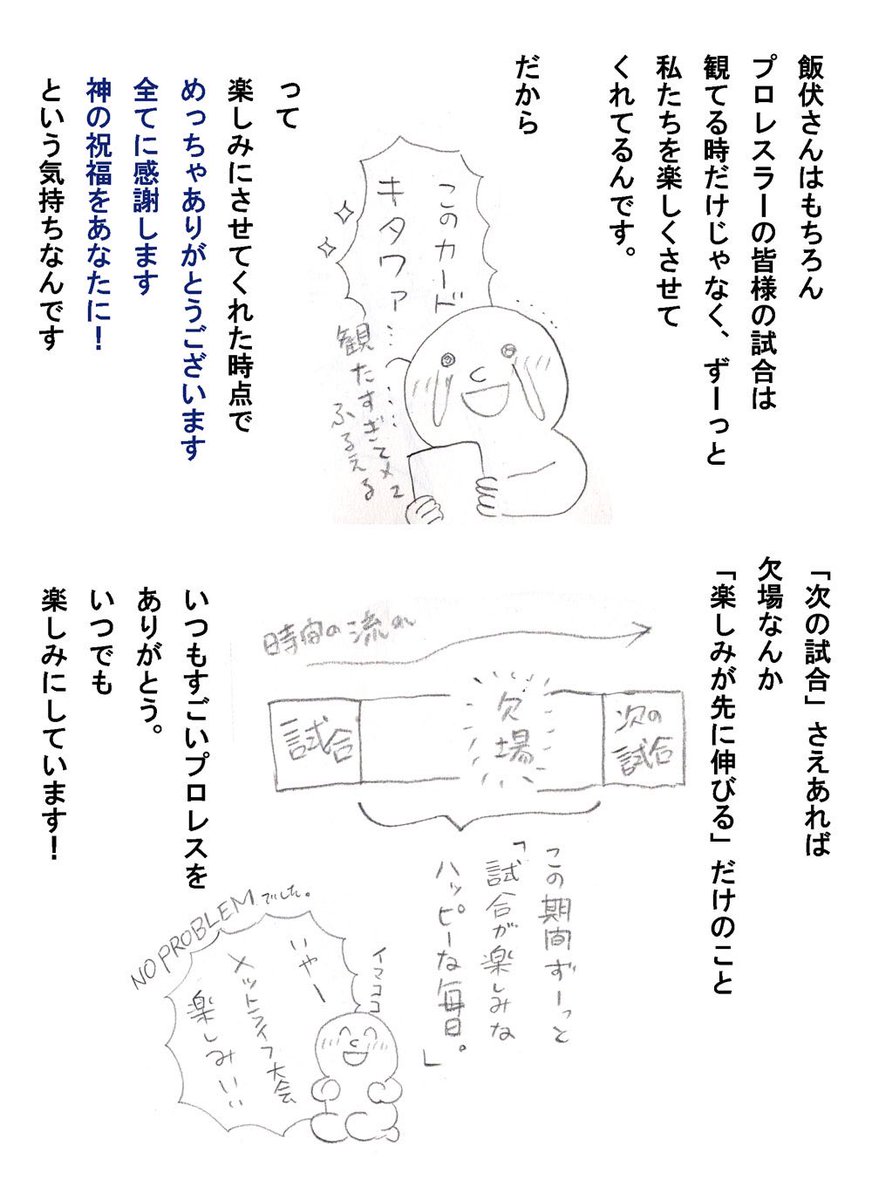 飯伏さんはもちろん
プロレスラーの皆様の試合は
観てる時だけじゃなく、ずーっと
私たちを楽しくさせて
くれてるんです。
だから
このカード
キタワァ……
観たすぎてメて
ふるえる
って
楽しみにさせてくれた時点で
めっちゃありがとうございます
全てに感謝します
神の祝福をあなたに！
という気持ちなんです
「次の試合」さえあれば
欠場なんか
「楽しみが先に伸びる」だけのこと
時間の流れ
試合
欠場
次の
試合
この期間ずーっと
「試合が楽しみな
ハッピーな毎日。」
イマココ
いやー
メットライフ大会
楽しみぃぃ
NO PROBLEMでした。
いつもすごいプロレスを
ありがとう。
いつでも
楽しみにしています！